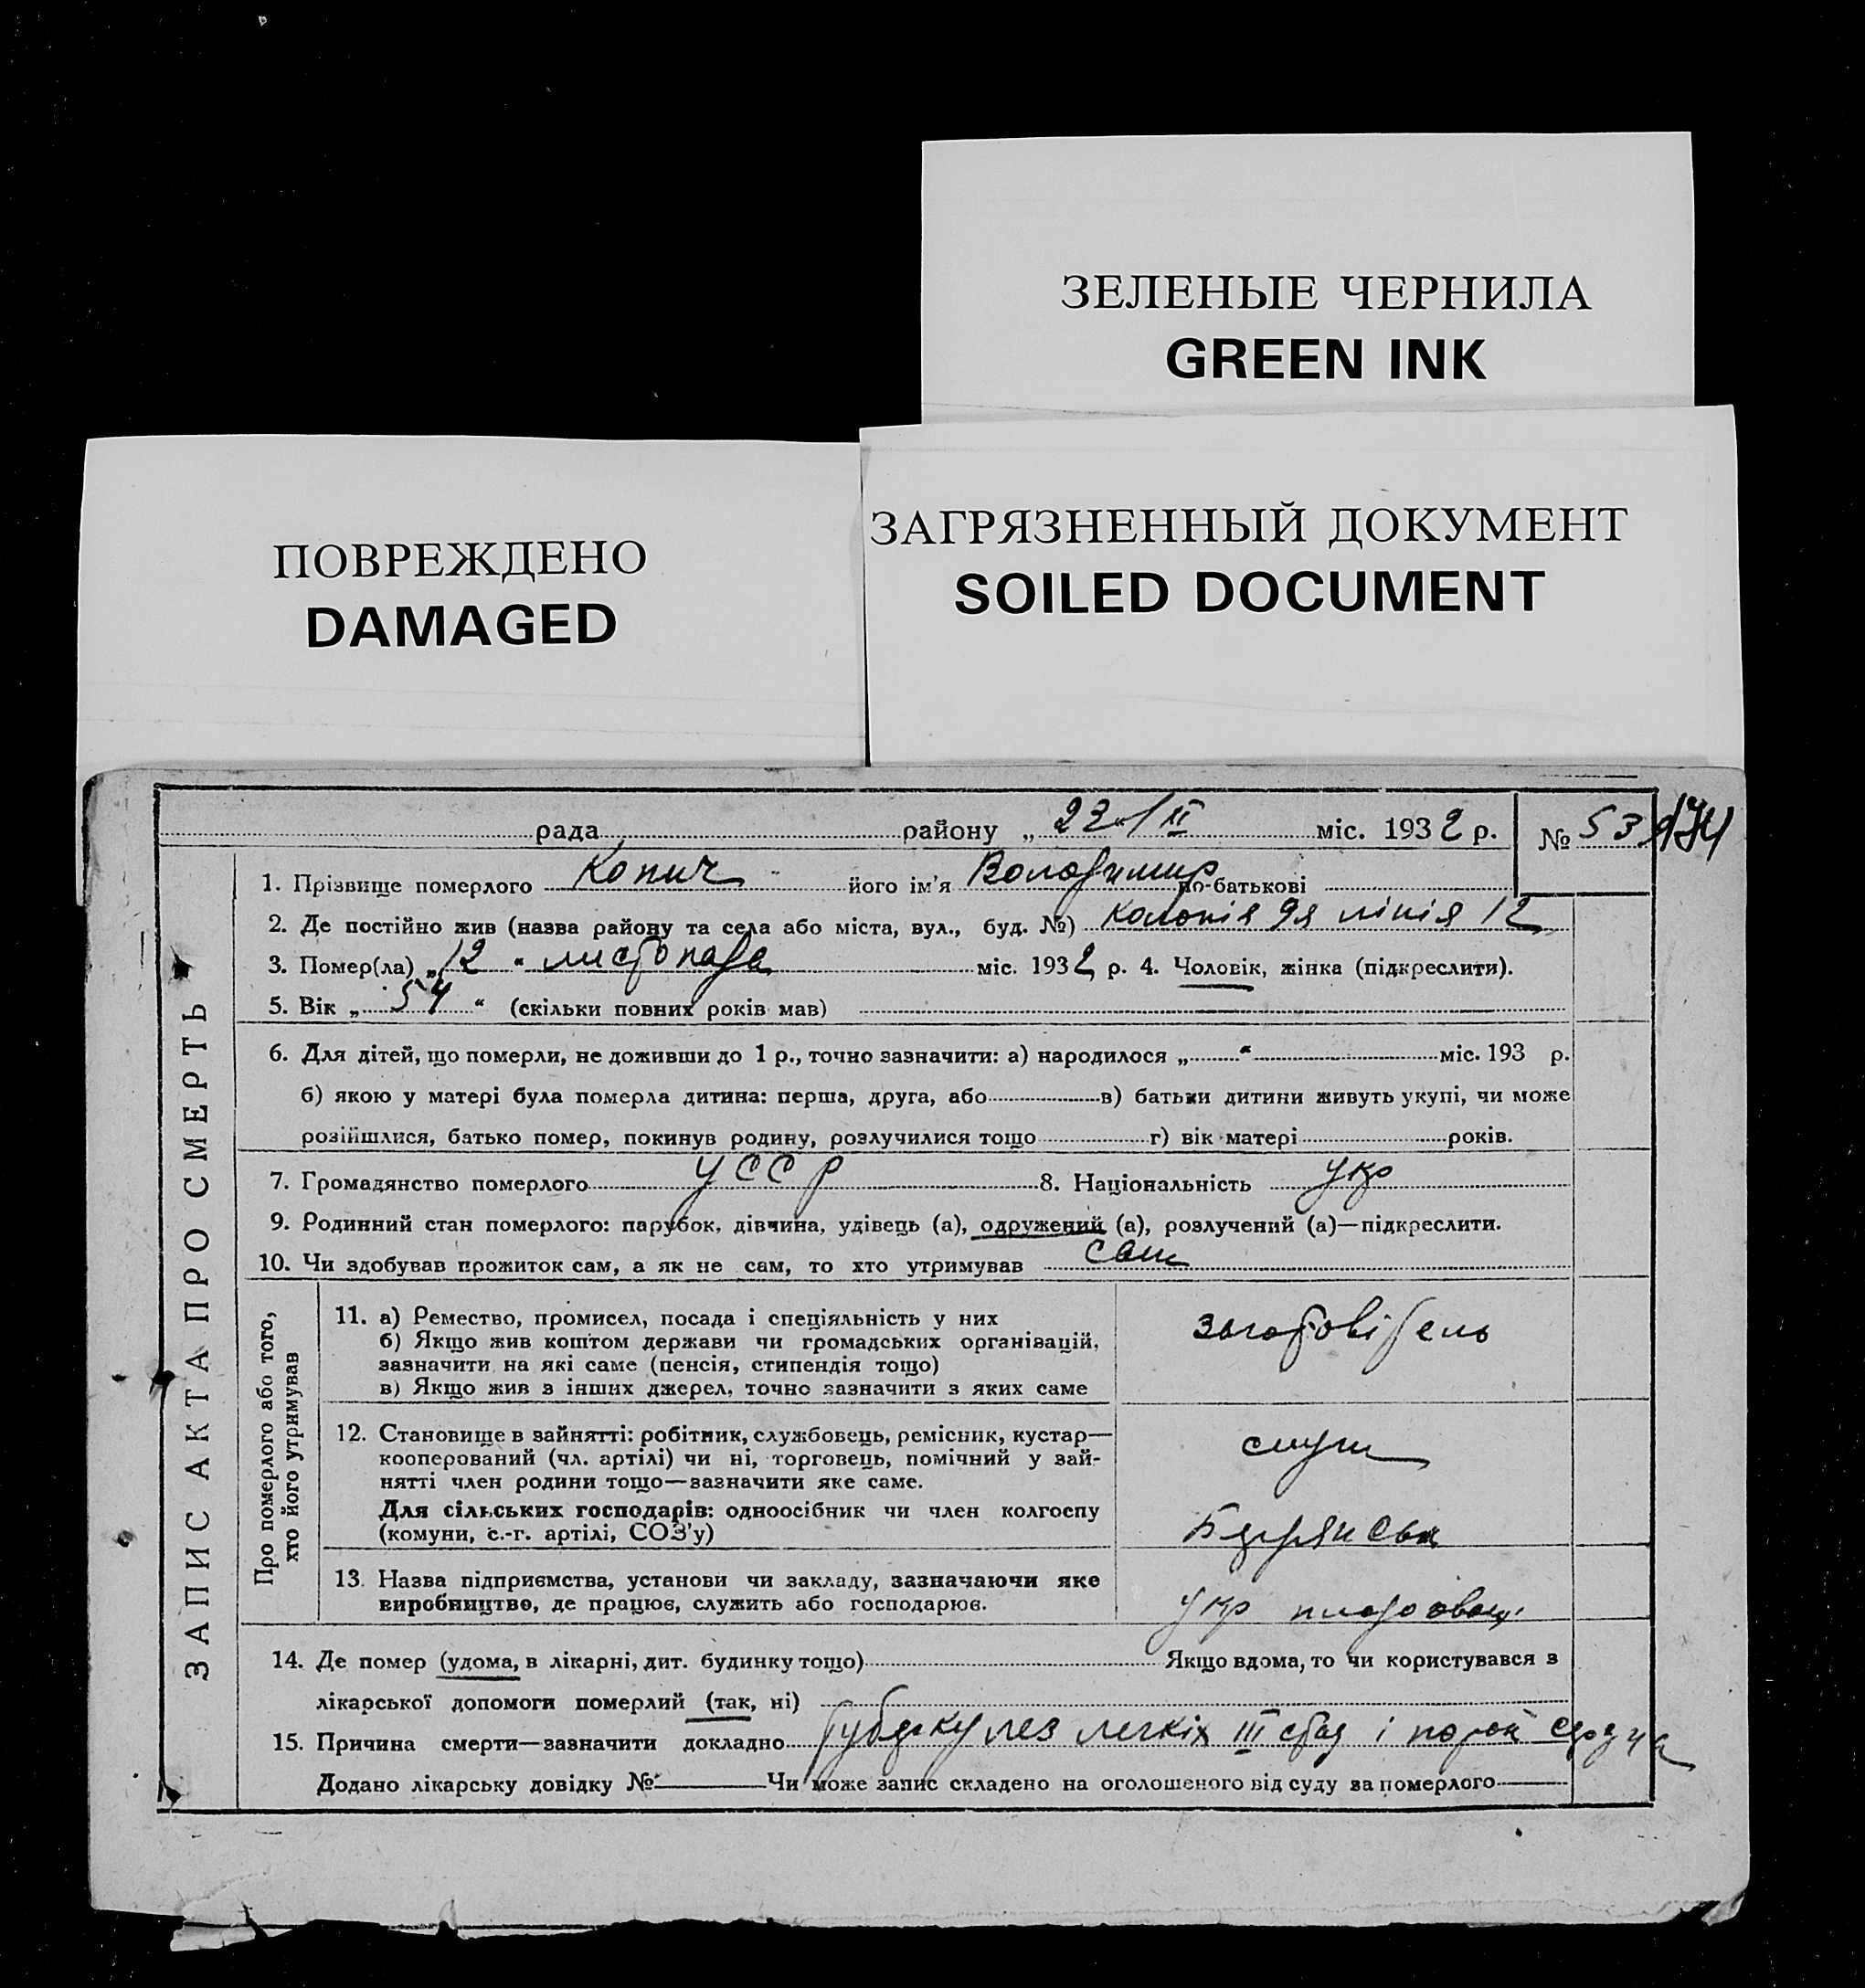 ЗЕЛЕНЫЕ ЧЕРНИЛА
GREEN INK
ПОВРЕЖДЕНО
DAMAGED
ЗАГРЯЗНЕННЫЙ ДОКУМЕНТ
SOILED DOCUMENT
рада района „ 23 " / міс. 1932 р. № 53 174
ЗАПИС АКТА ПРО СМЕРТЬ
1. Прізвище померлого Копич його ім'я Володимир по-батькові
2. Де постійно жив (назва району та села або міста, вул., буд. №) колонія 9я лінія 12
3. Помер(ла) „12" листопада міс. 1932 р. 4. Чоловік, жінка (підкреслити).
5. Вік „ 54 " (скільки повних років мав)
6. Для дітей, що померли, не доживши до 1 р., точно зазначити: а) народилося „ " міс. 193 р.
б) якою у матері була померла дитина: перша, друга, або в) батьки дитини живуть укупі, чи може
розійшлися, батько помер, покинув родину, розлучилися тощо г) вік матері років.
7. Громадянство померлого УССР 8. Національність укр
9. Родинний стан померлого: парубок, дівчина, удівець (а), одружений (а), розлучений (а)—підкреслити.
10. Чи здобував прожиток сам, а як не сам, то хто утримував сам
Про померлого або того,
хто його утримував
11. а) Ремество, промисел, посада і спеціяльність у них
б) Якщо жив коштом держави чи громадських організацій,
зазначити на які саме (пенсія, стипендія тощо)
в) Якщо жив з інших джерел, точно зазначити з яких саме
заготовітель
12. Становище в зайнятті: робітник, службовець, ремісник, кустар—
кооперований (чл. артілі) чи ні, торговець, помічний у зай-
нятті член родини тощо—зазначити яке саме.
Для сільських господарів: одноосібник чи член колгоспу
(комуни, с.-г. артілі, СОЗ'у)
служ
13. Назва підприємства, установи чи закладу, зазначаючи яке
виробництво, де працює, служить або господарює.
Бердянська
Укр плодоовощ
14. Де помер (удома, в лікарні, дит. будинку тощо) Якщо вдома, то чи користувався з
лікарської допомоги померлий (так, ні)
15. Причина смерти—зазначити докладно туберкулез легкіх III стад і порок сердца
Додано лікарську довідку № Чи може запис складено на оголошеного від суду за померлого